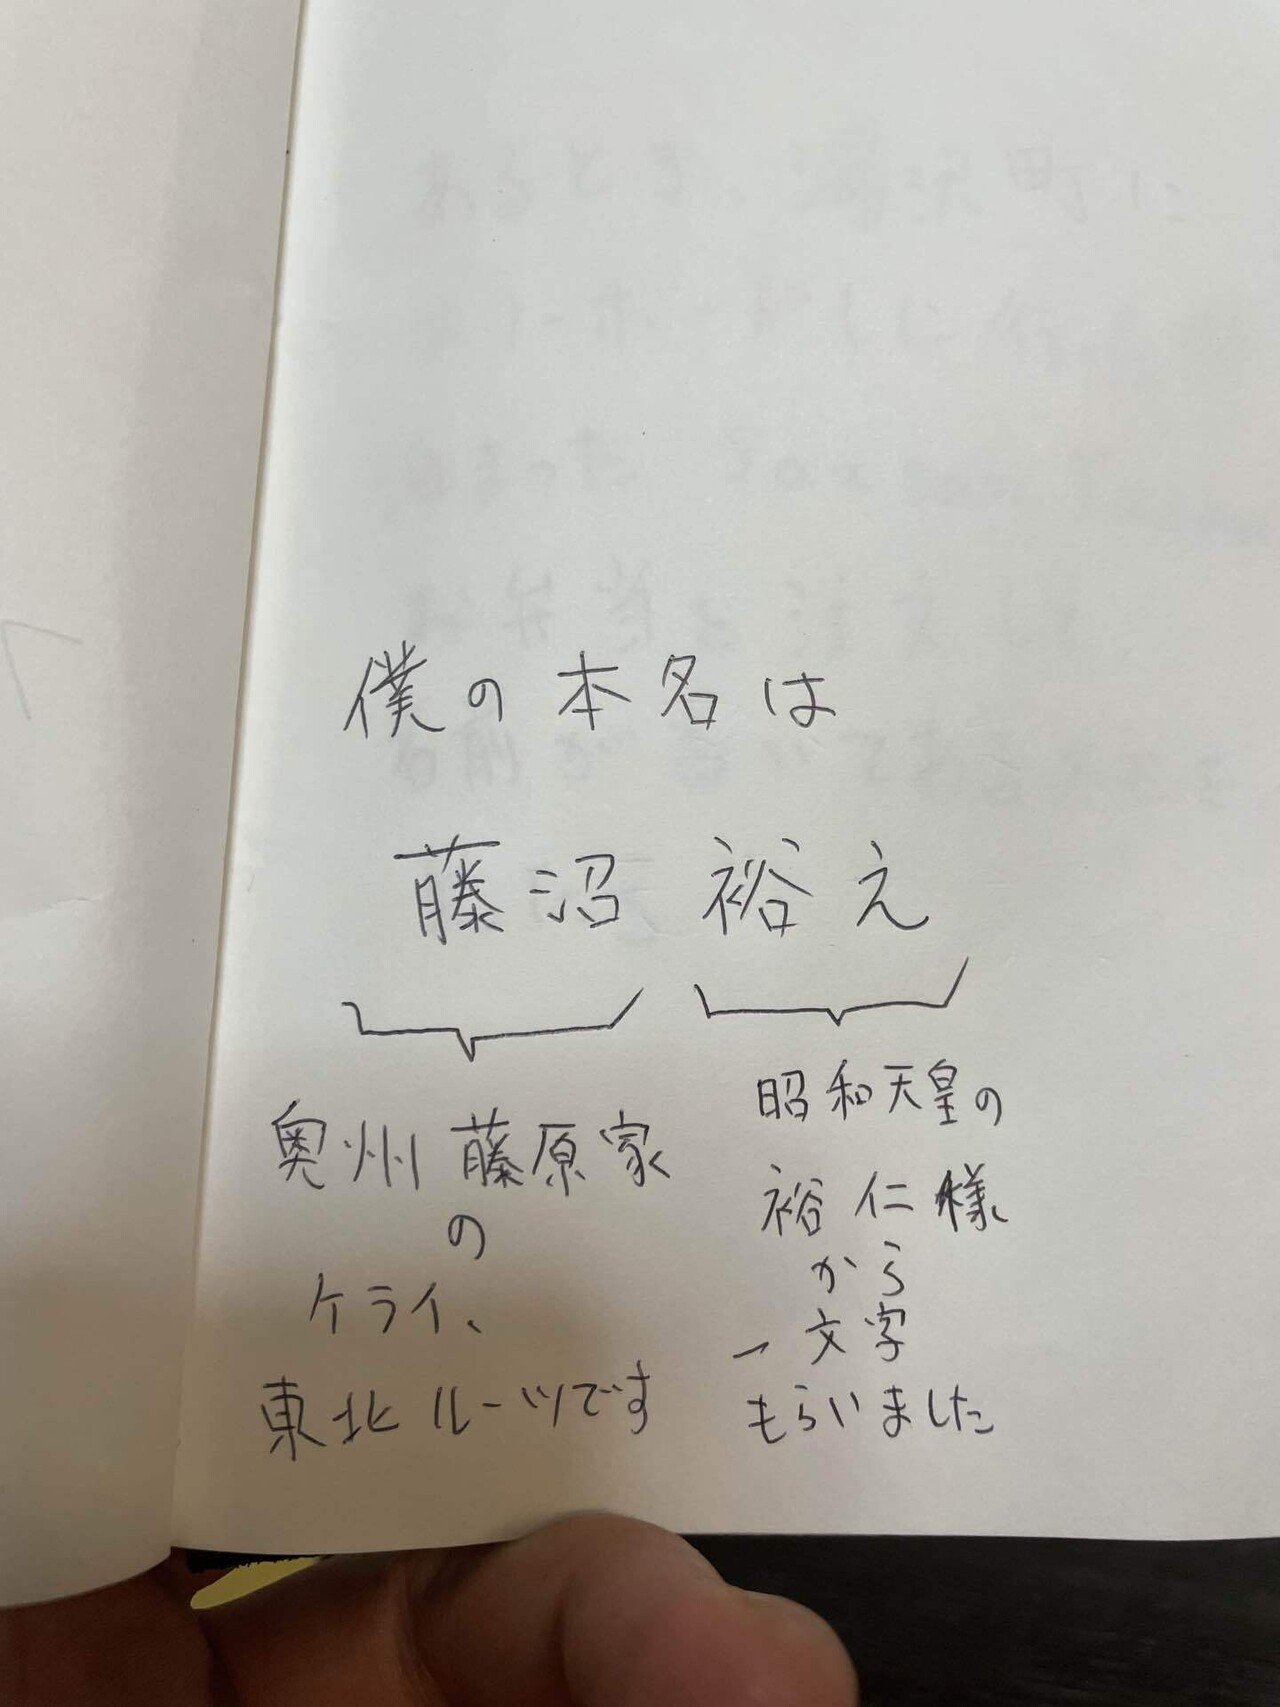 僕の本名は
藤沼 裕え
奥州 藤原家
の
ケライ、
東北ルーツです
昭和天皇の
裕仁様
から
一文字
もらいました